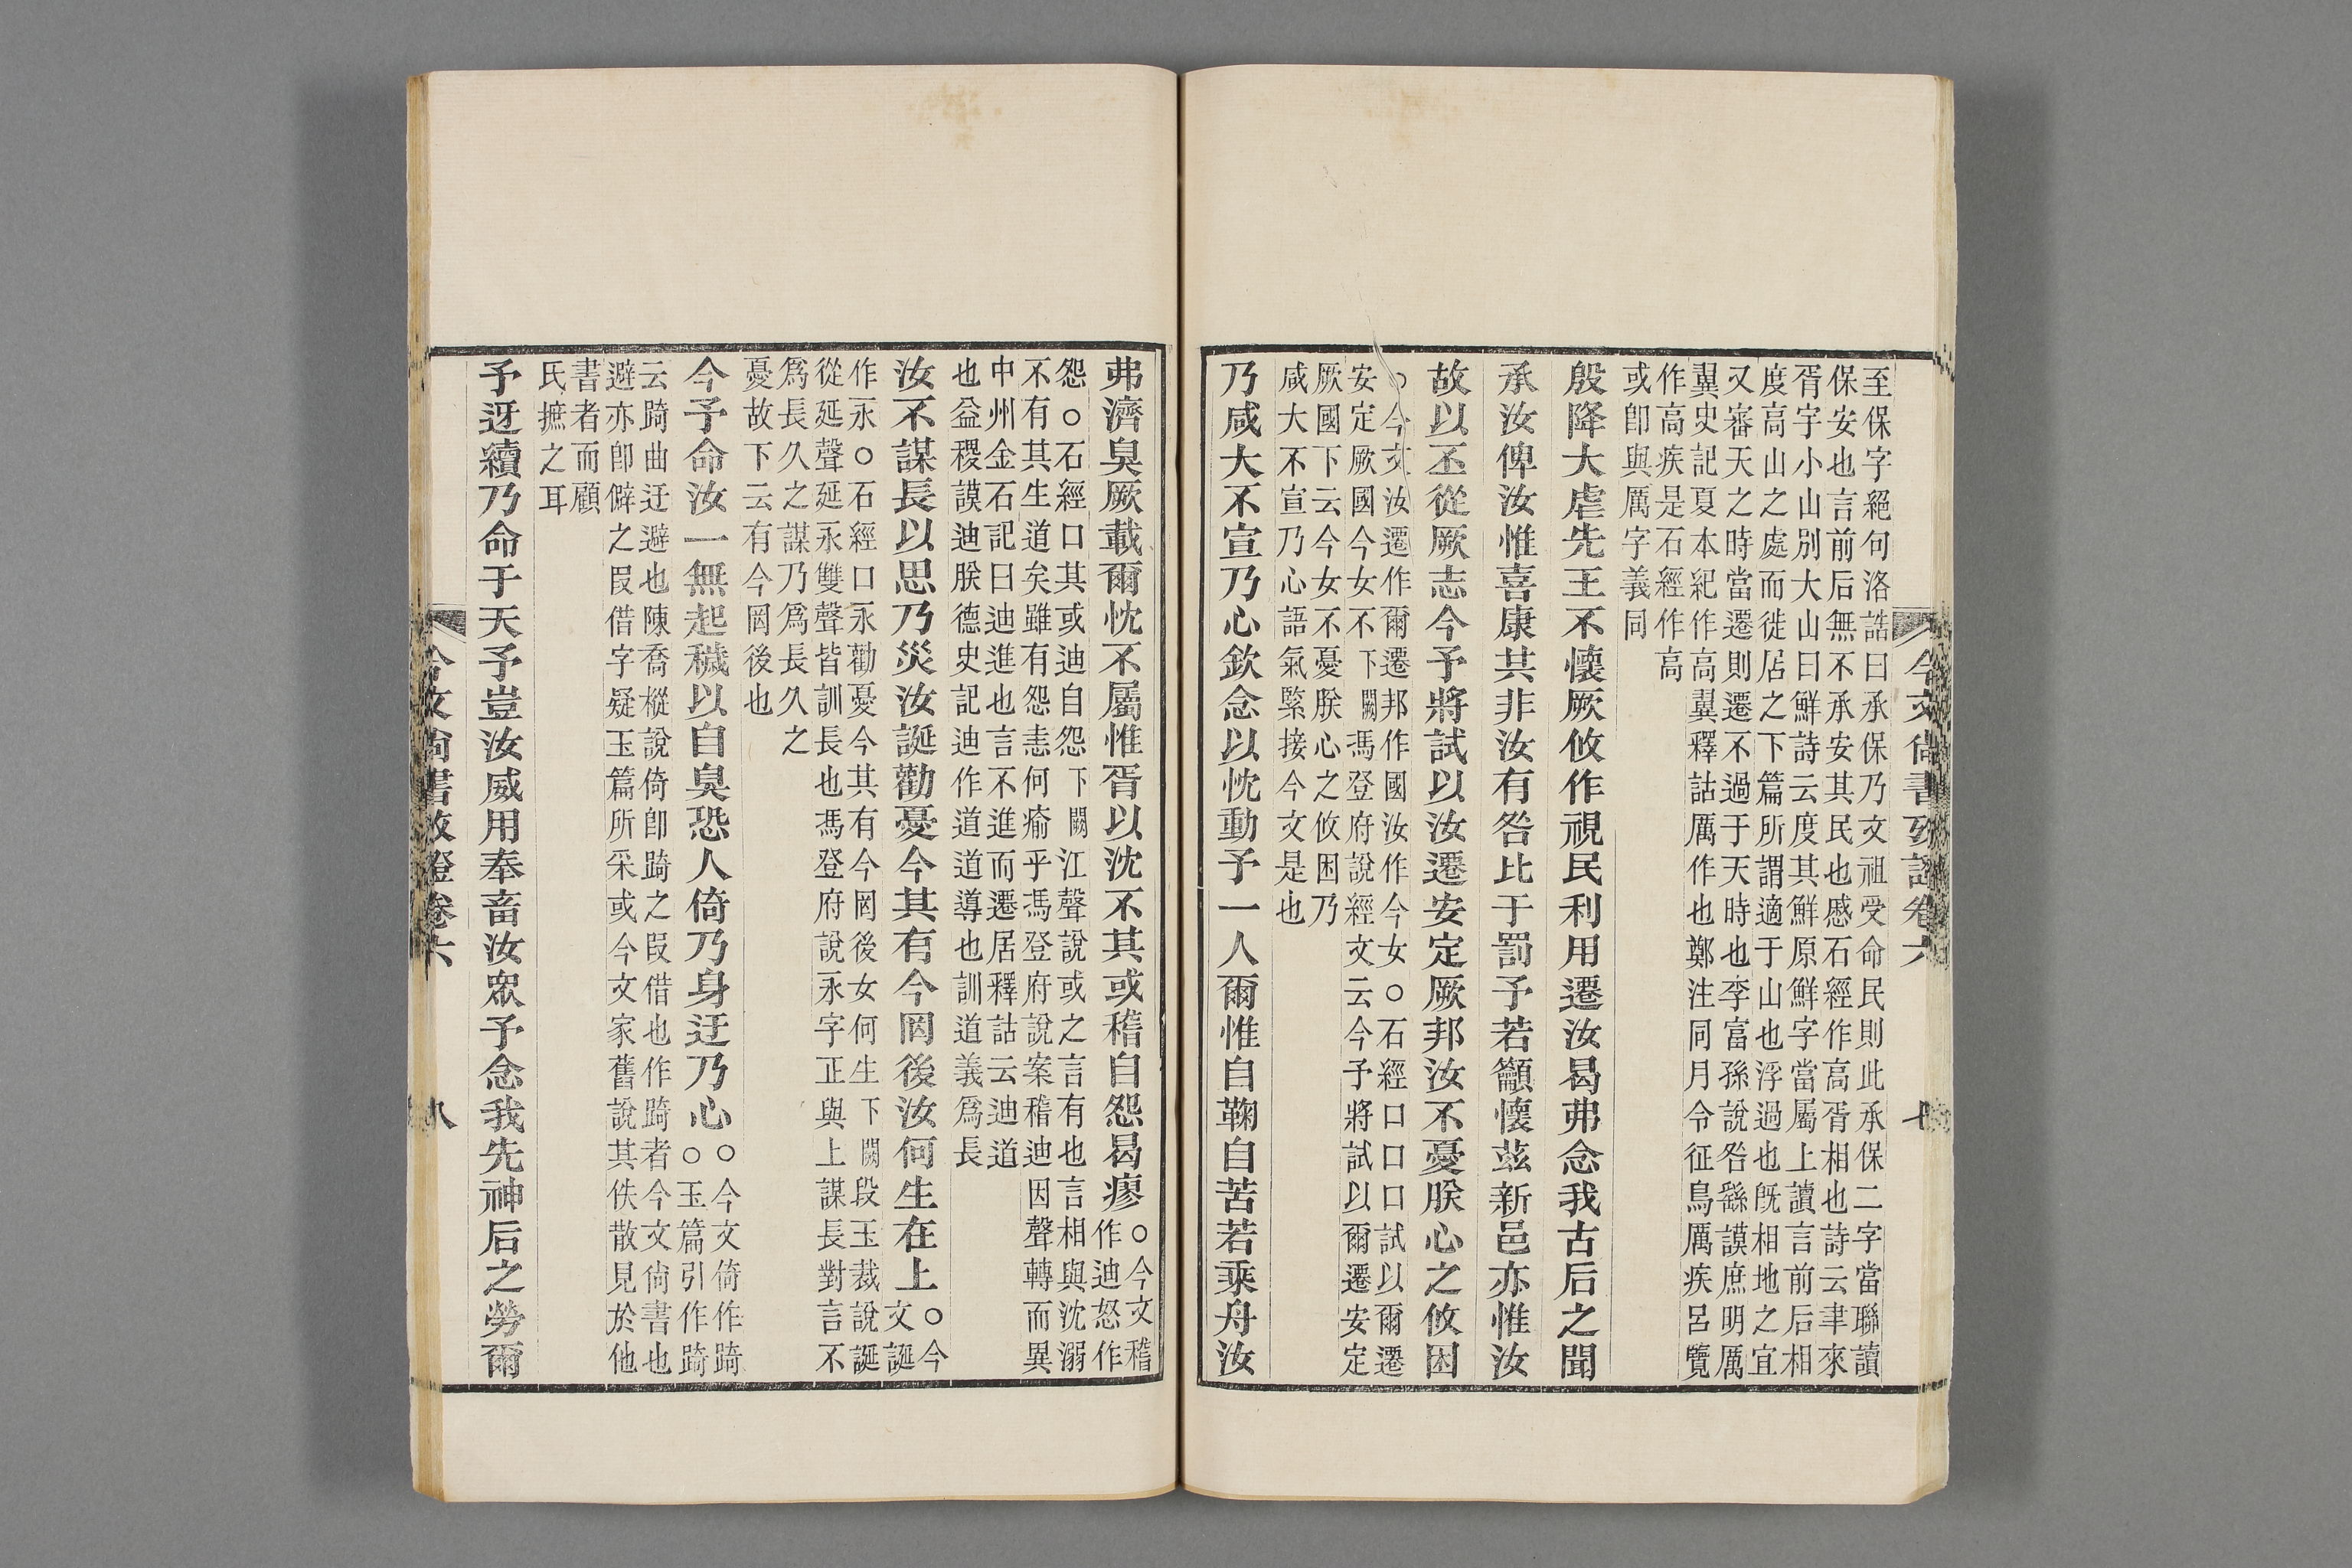 至保字絕句洛誥曰承保乃文祖受命民則此承保二字當聯讀
保安也言前后無不承安其民也慼石經作高胥相也詩云聿來
胥宇小山別大山曰鮮詩云度其鮮原鮮字當屬上讀言前后相
度高山之處而徙居之下篇所謂適于山也浮過也旣相地之宜
又審天之時當遷則遷不過于天時也李富孫說咎繇謨庶明厲
翼史記夏本紀作高翼釋詁厲作也鄭注同月令征鳥厲疾呂覽
作高疾是石經作高
或卽與厲字義同
殷降大虐先王不懷厥攸作視民利用遷汝曷弗念我古后之聞
承汝俾汝惟喜康共非汝有咎比于罰予若籲懷茲新邑亦惟汝
故以丕從厥志今予將試以汝遷安定厥邦汝不憂朕心之攸困
○今文汝遷作爾遷邦作國汝作今女○石經口口口試以爾遷
安定厥國今女不下闕馮登府說經文云今予將試以爾遷安定
厥國下云今女不憂朕心之攸困乃
咸大不宣乃心語氣緊接今文是也
乃咸大不宣乃心欽念以忱動予一人爾惟自鞠自苦若乘舟汝
今文尙書攷證卷六
七
弗濟臭厥載爾忱不屬惟胥以沈不其或稽自怨曷瘳○今文稽
作迪怒作
怨○石經口其或迪自怨下闕江聲說或之言有也言相與沈溺
不有其生道矣雖有怨恚何瘉乎馮登府說案稽迪因聲轉而異
中州金石記曰迪進也言不進而遷居釋詁云迪道
也益稷謨迪朕德史記迪作道道導也訓道義爲長
汝不謀長以思乃災汝誕勸憂今其有今罔後汝何生在上○今
文誕
作永○石經口永勸憂今其有今罔後女何生下闕段玉裁說誕
從延聲延永雙聲皆訓長也馮登府說永字正與上謀長對言不
爲長久之謀乃爲長久之
憂故下云有今罔後也
今予命汝一無起穢以自臭恐人倚乃身迂乃心○今文倚作踦
○玉篇引作踦
云踦曲迂避也陳喬樅說倚卽踦之叚借也作踦者今文尙書也
避亦卽僻之叚借字疑玉篇所采或今文家舊說其佚散見於他
書者而顧
氏摭之耳
予迓續乃命于天予豈汝威用奉畜汝眾予念我先神后之勞爾
今文尙書攷證卷六
八